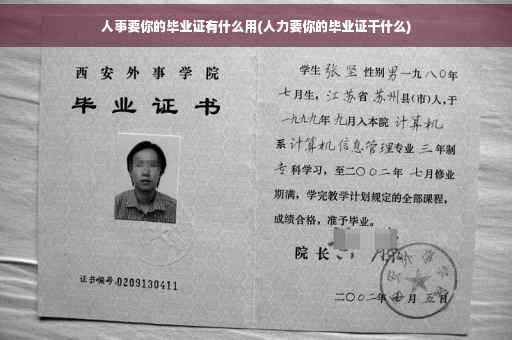 人事要你的毕业证有什么用(人力要你的毕业证干什么)
西安外事学院
毕业证书
证书编号:0209130411
学生 张坚 性别 男 一九八〇年
七月生, 江苏省 苏州县(市)人,于
一九九九年 九月入本院 计算机
系 计算机信息管理专业 三 年制
专科学习,至二〇〇二年 七月修业
期满,学完教学计划规定的全部课程,
成绩合格,准予毕业。
院长
二〇〇二年 七月 五日